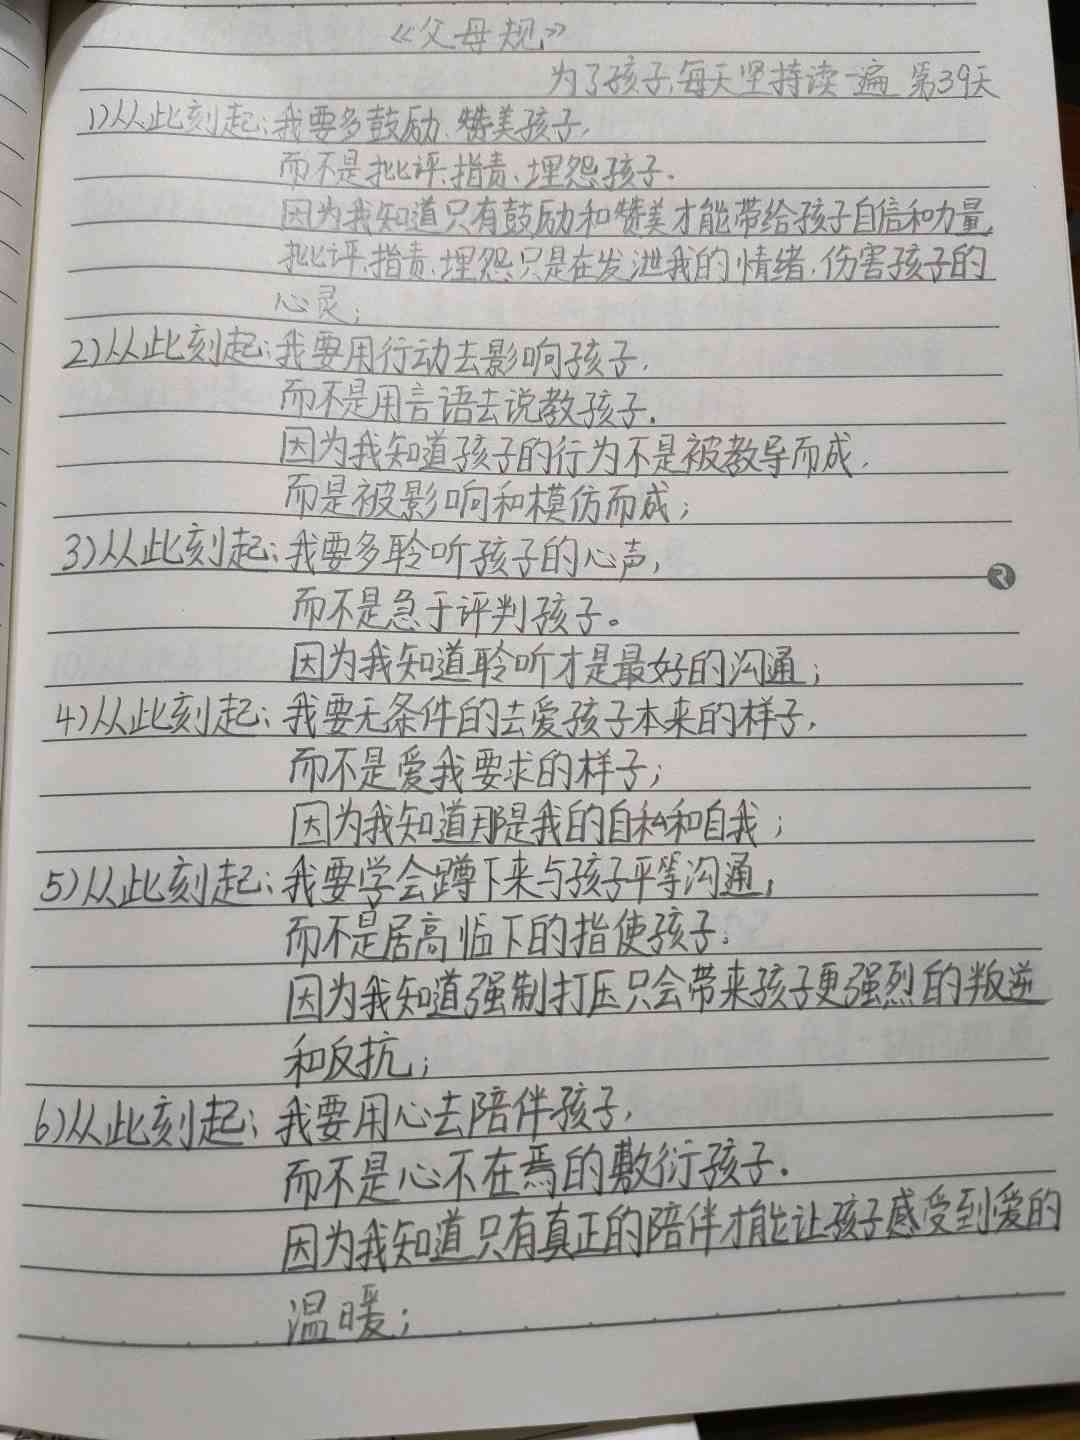 《父母规》
为了孩子,每天坚持读一遍 第39天
1)从此刻起:我要多鼓励、赞美孩子,
而不是批评、指责、埋怨孩子.
因为我知道只有鼓励和赞美才能带给孩子自信和力量,
批评、指责、埋怨只是在发泄我的情绪,伤害孩子的
心灵;
2)从此刻起:我要用行动去影响孩子.
而不是用言语去说教孩子.
因为我知道孩子的行为不是被教导而成,
而是被影响和模仿而成;
3)从此刻起:我要多聆听孩子的心声,
而不是急于评判孩子。
因为我知道聆听才是最好的沟通;
4)从此刻起:我要无条件的去爱孩子本来的样子,
而不是爱我要求的样子;
因为我知道那是我的自私和自我;
5)从此刻起:我要学会蹲下来与孩子平等沟通,
而不是居高临下的指使孩子.
因为我知道强制打压只会带来孩子更强烈的叛逆
和反抗;
6)从此刻起:我要用心去陪伴孩子,
而不是心不在焉的敷衍孩子.
因为我知道只有真正的陪伴才能让孩子感受到爱的
温暖;